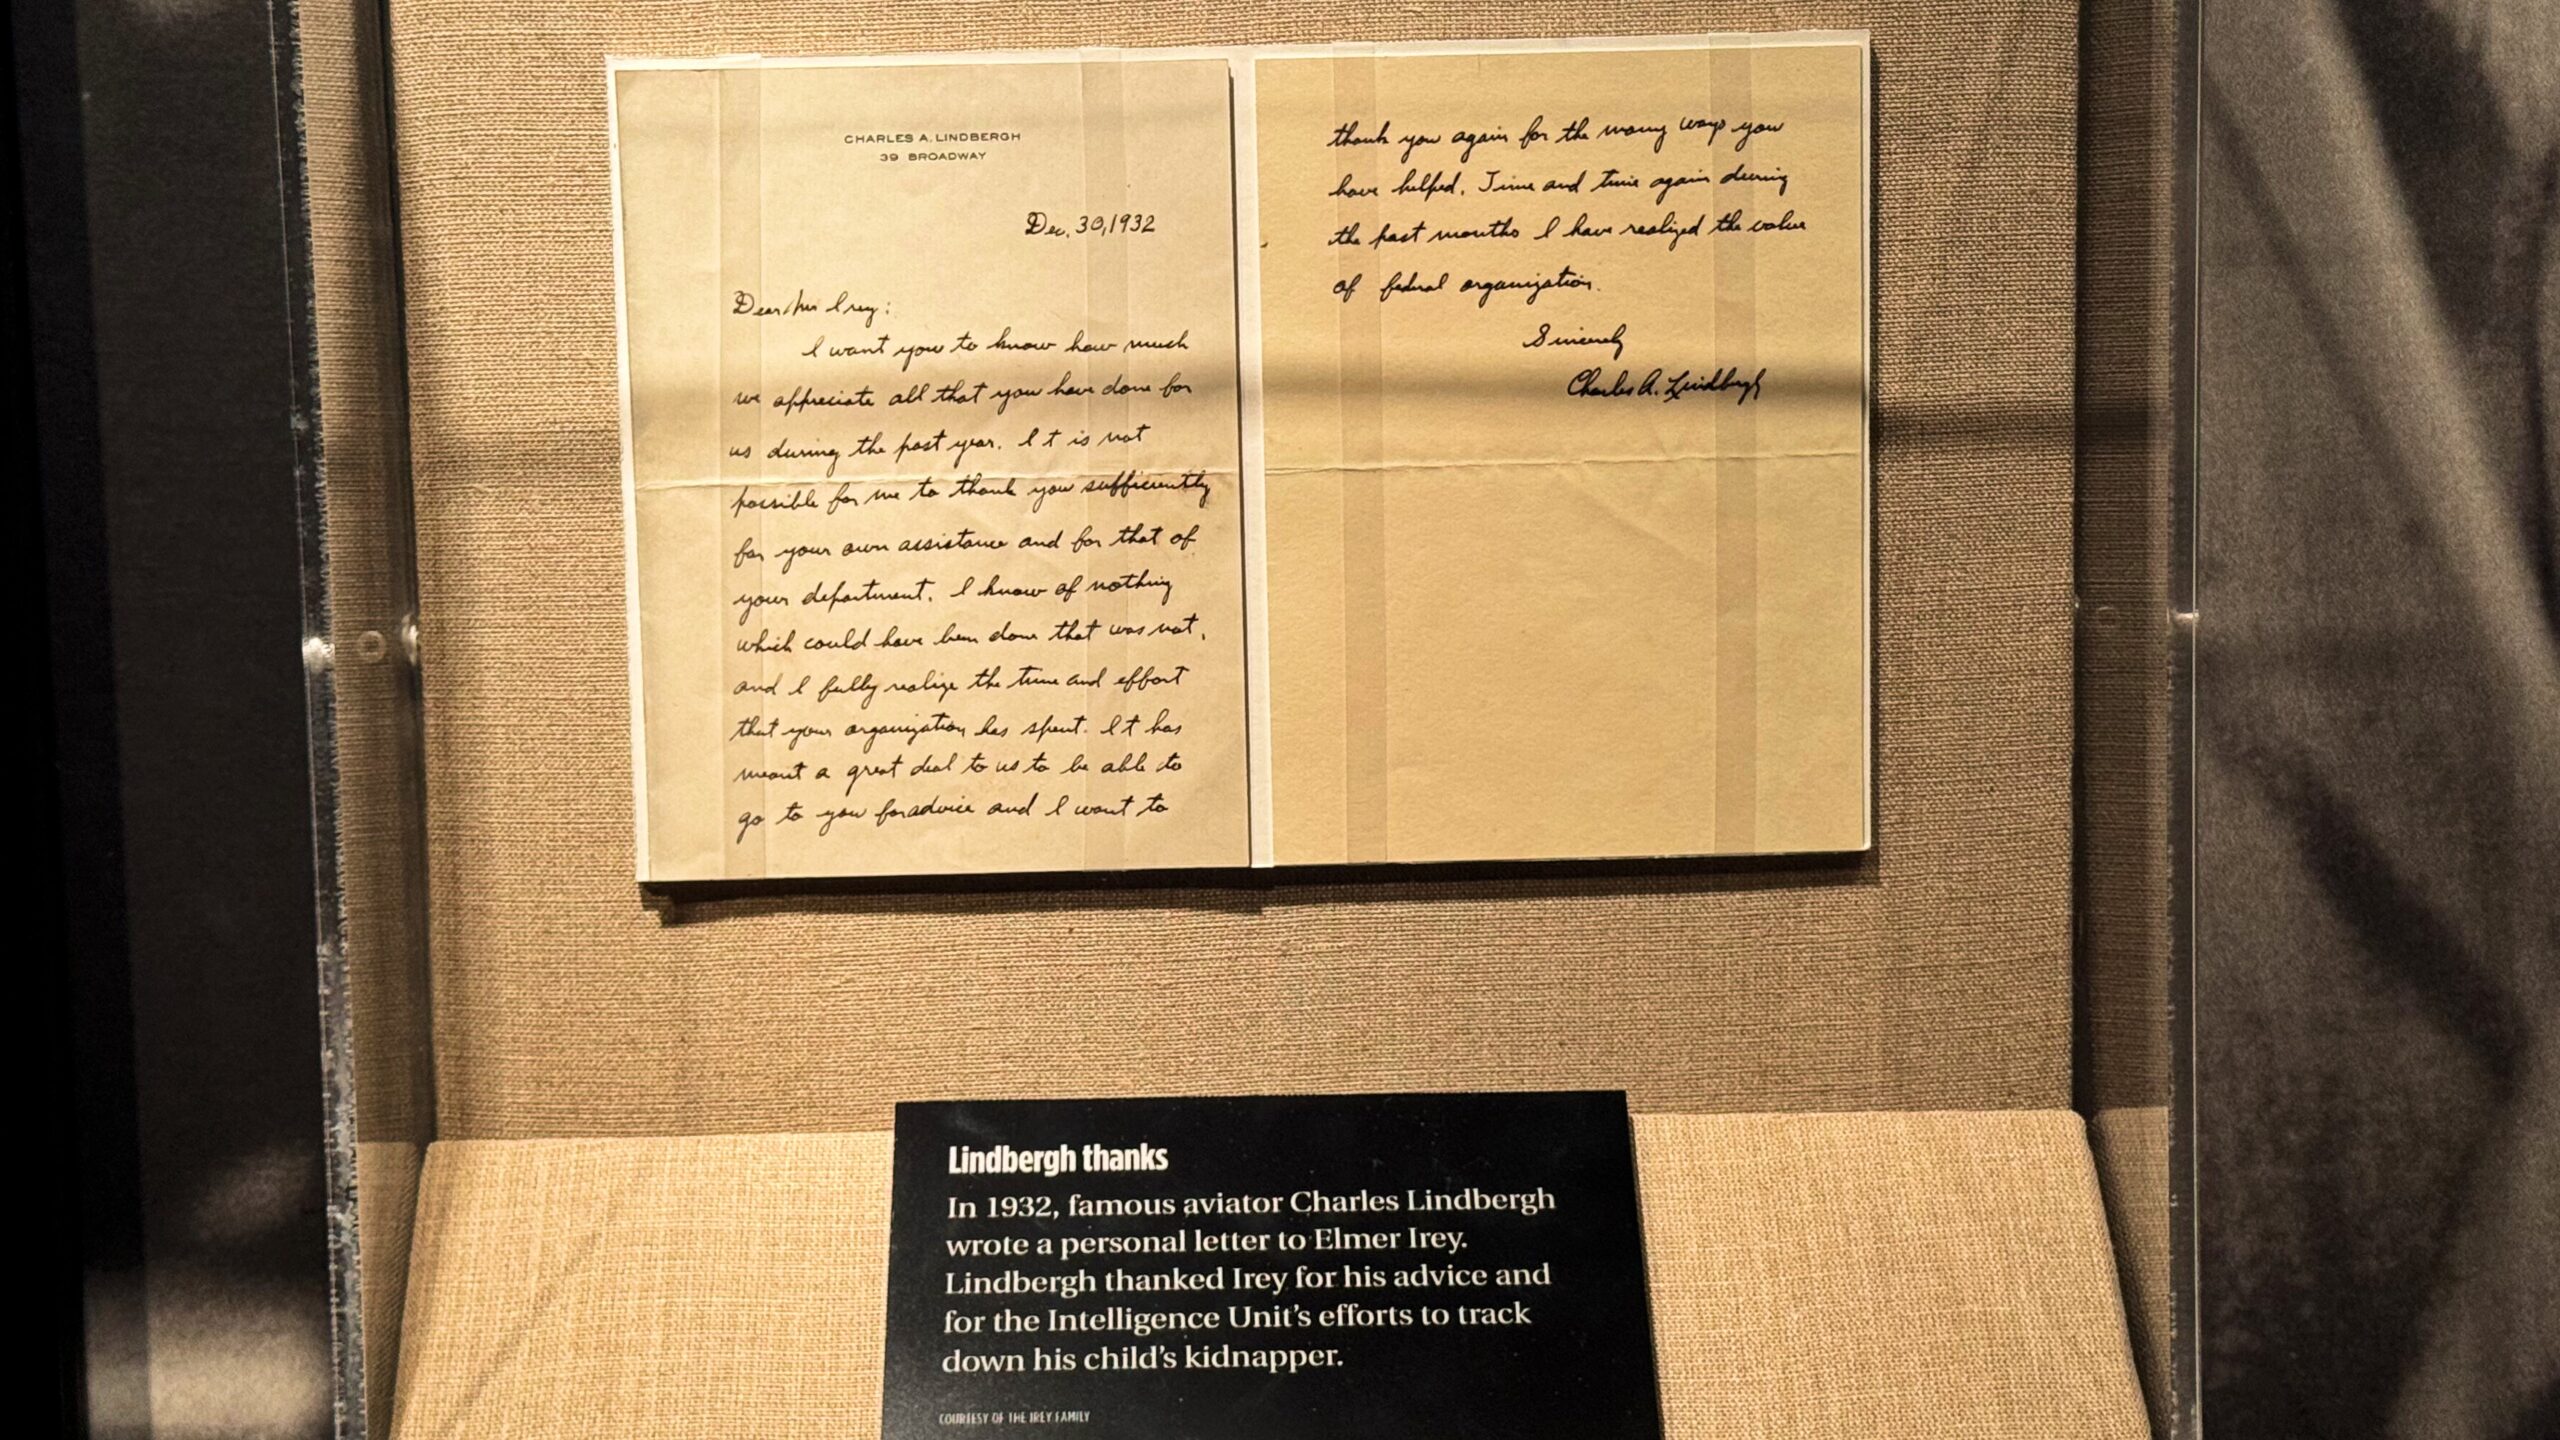 CHARLES A. LINDBERGH
39 BROADWAY
Dec. 30, 1932
Dear Mr Irey:
I want you to know how much
we appreciate all that you have done for
us during the past year. It is not
possible for me to thank you sufficiently
for your own assistance and for that of
your department. I know of nothing
which could have been done that was not,
and I fully realize the time and effort
that your organization has spent. It has
meant a great deal to us to be able to
go to you for advice and I want to
thank you again for the many ways you
have helped. Time and time again during
the past months I have realized the value
of federal organization.
Sincerely
Charles A. Lindbergh
Lindbergh thanks
In 1932, famous aviator Charles Lindbergh
wrote a personal letter to Elmer Irey.
Lindbergh thanked Irey for his advice and
for the Intelligence Unit's efforts to track
down his child's kidnapper.
COURTESY OF THE IREY FAMILY